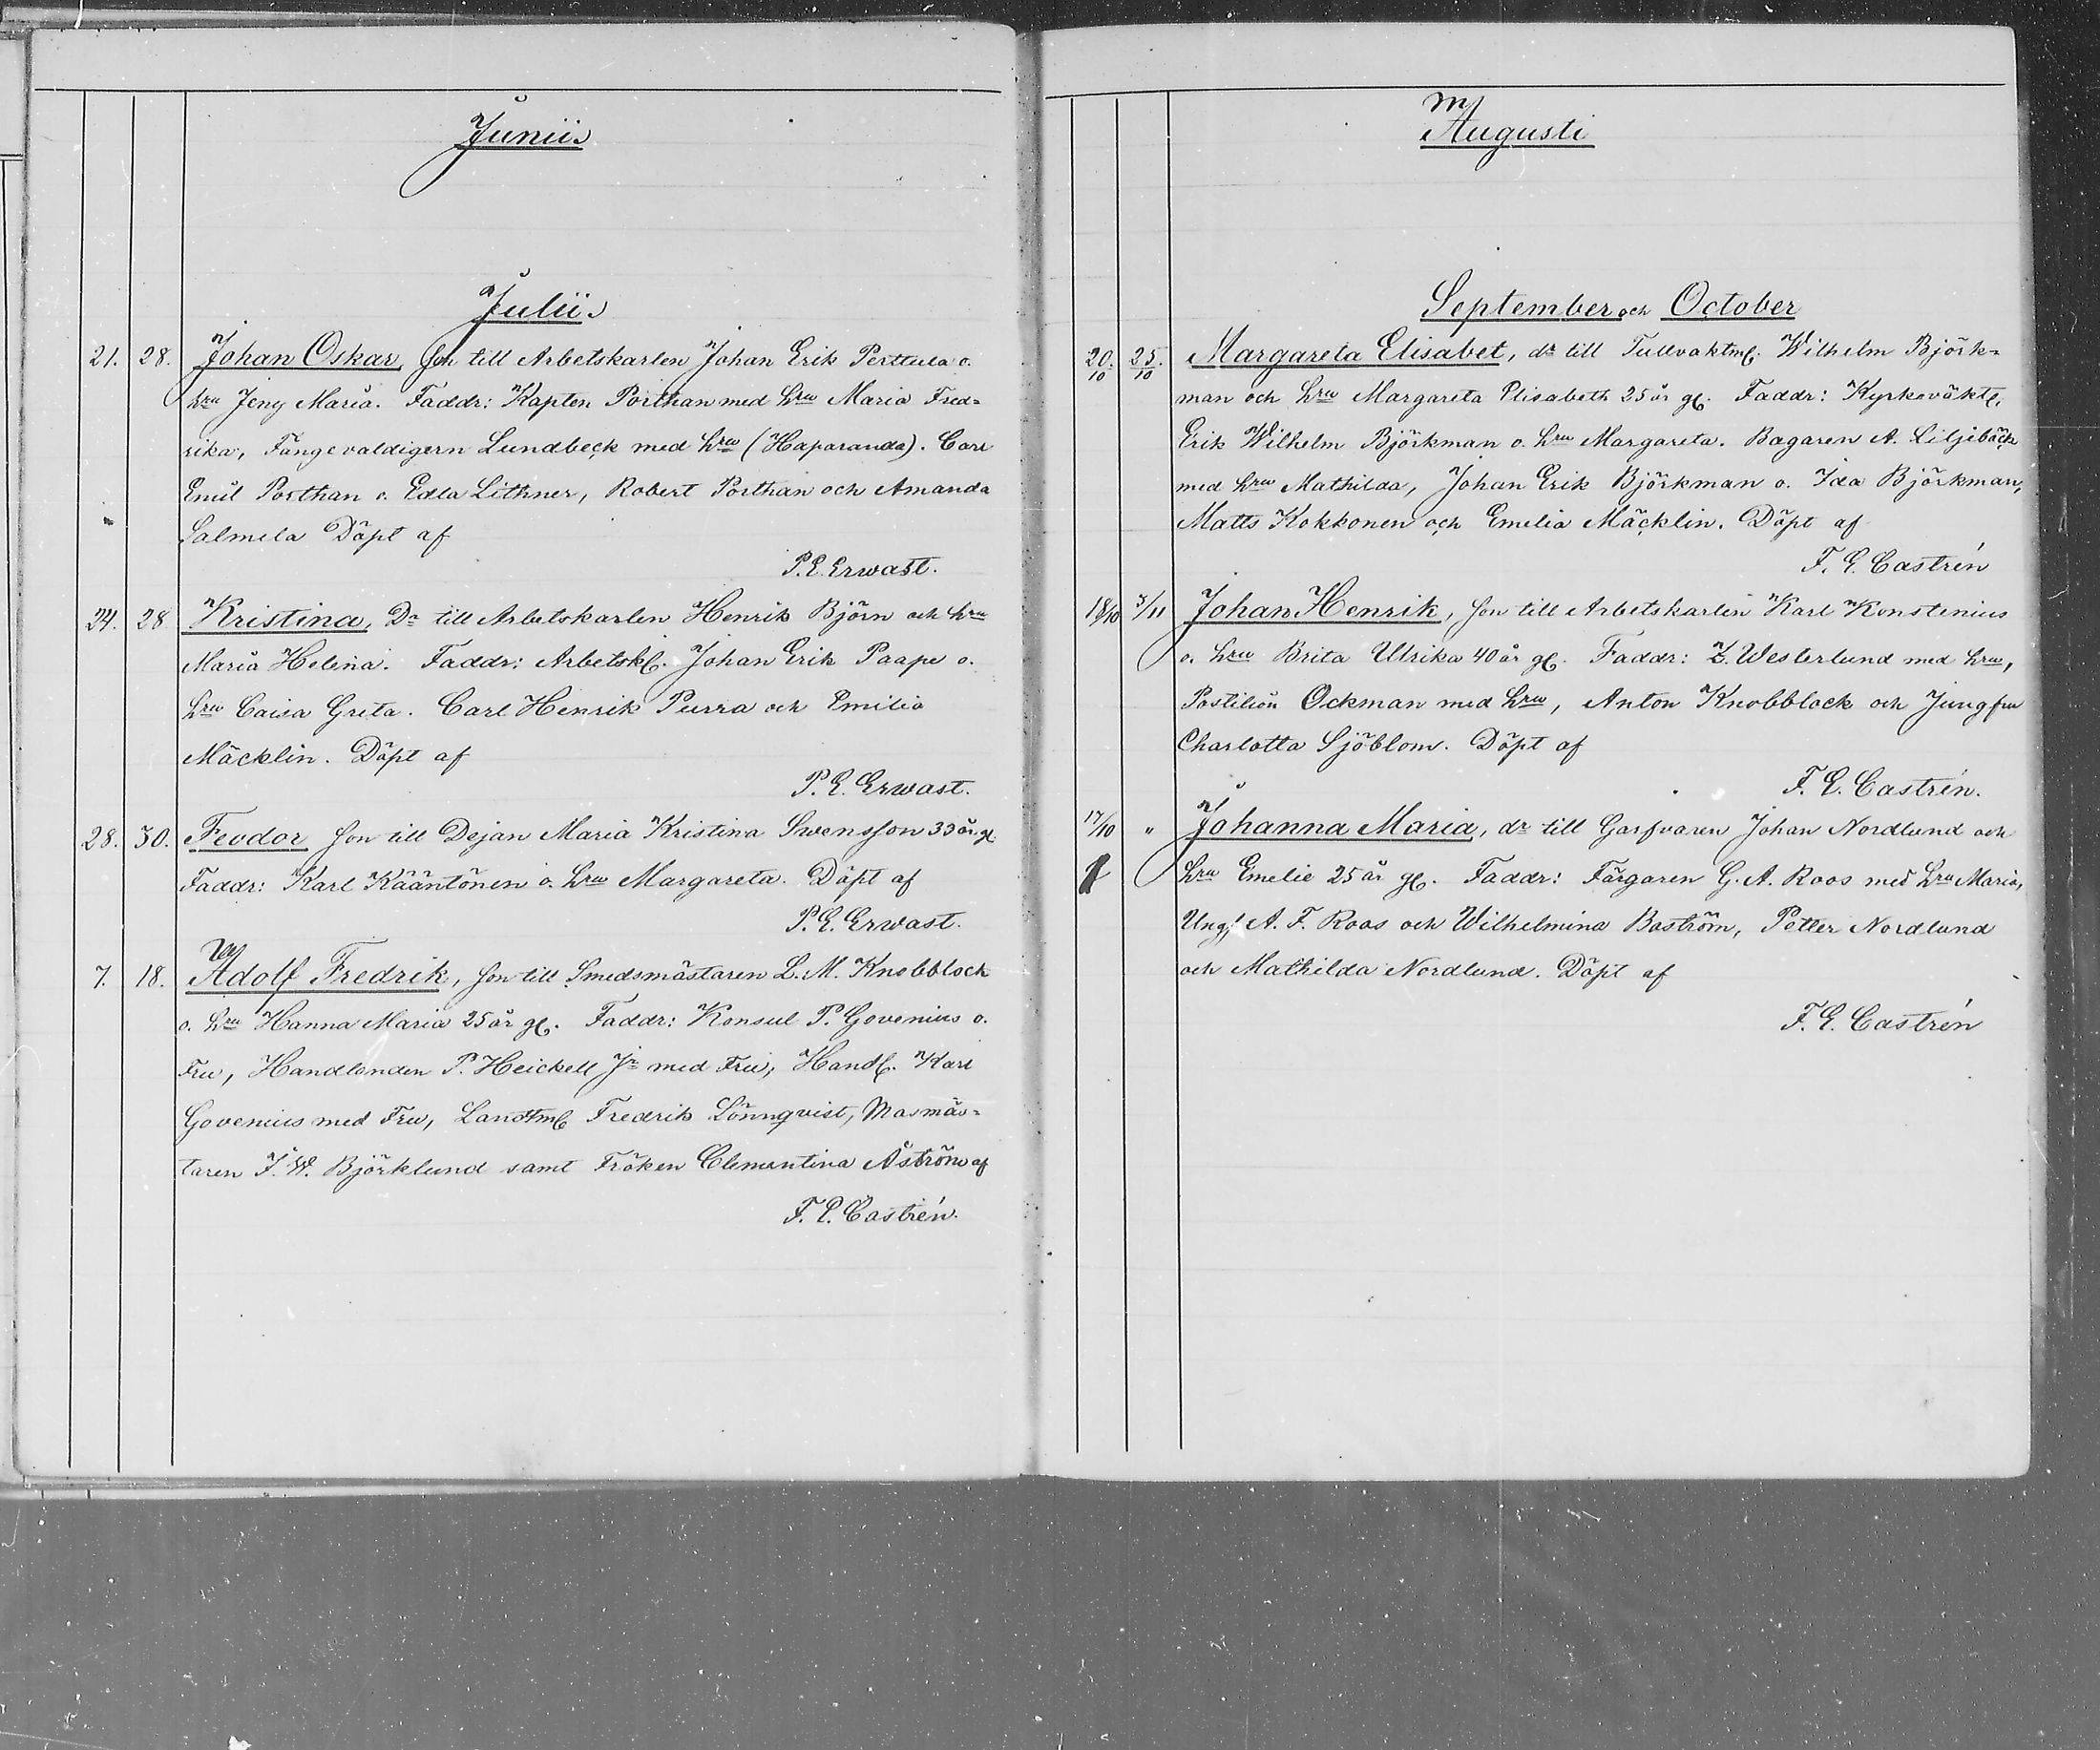 Junii
Julii
21. 28. Johan Oskar, son till Arbetskarlen Johan Erik Perttula o.
hru Jeny Maria. Faddr: Kapten Porthan med hru Maria Fred=
rika, Fångevaldigern Lundbeck med hru (Haparanda). Carl
Emil Porthan o. Edla Lithner, Robert Porthan och Amanda
Salmela Döpt af
P. E. Erwast.
24. 28 Kristina, Dr till Arbetskarlen Henrik Björn och hru
Maria Helena. Faddr: Arbetskl. Johan Erik Paape o.
hru Caisa Greta. Carl Henrik Purra och Emilia
Mäcklin. Döpt af
P. E. Erwast.
28. 30. Feodor son till Dejan Maria Kristina Swensson 33 år gl.
Faddr: Karl Kääntönen o. hru Margareta. Döpt af
P. E. Erwast.
7. 18. Adolf Fredrik, son till Smedsmästaren L. M. Knobbloch
o. hru Hanna Maria 25 år gl. Faddr: Konsul P. Govenius o.
Fru, Handlanden P. Heickell Jr med Fru, Handl. Karl
Govenius med Fru, Landtm Fredrik Lönnqvist, Masmäs=
taren J. W. Björklund samt Fröken Clementina Åström af
F. E. Castrén.
Augusti
September och October
20/10 25/10. Margareta Elisabet, dr till Tullvaktm. Wilhelm Björk=
man och hru Margareta Elisabeth 25 år gl. Faddr: Kyrkoväkt.
Erik Wilhelm Björkman o. hru Margareta. Bagaren A. Liljebäck
med hru Mathilda, Johan Erik Björkman o. Ida Björkman,
Matts Kokkonen och Emelia Mäcklin. Döpt af
F. E. Castrén
18/10 3/11 Johan Henrik, son till Arbetskarlen Karl Konstenius
o. hru Brita Ulrika 40 år gl. Faddr: Z. Westerlund med hru,
Postilion Ockman med hru, Anton Knobblock och Jungfru
Charlotta Sjöblom. Döpt af
F. E. Castrén.
17/10 " Johanna Maria, dr till Garfvaren Johan Nordlund och
hru Emelie 25 år gl. Faddr: Färgaren G. A. Roos med hru Maria,
Ungl A. F. Roos och Wilhelmina Boström, Petter Nordlund
och Mathilda Nordlund. Döpt af
F. E. Castrén